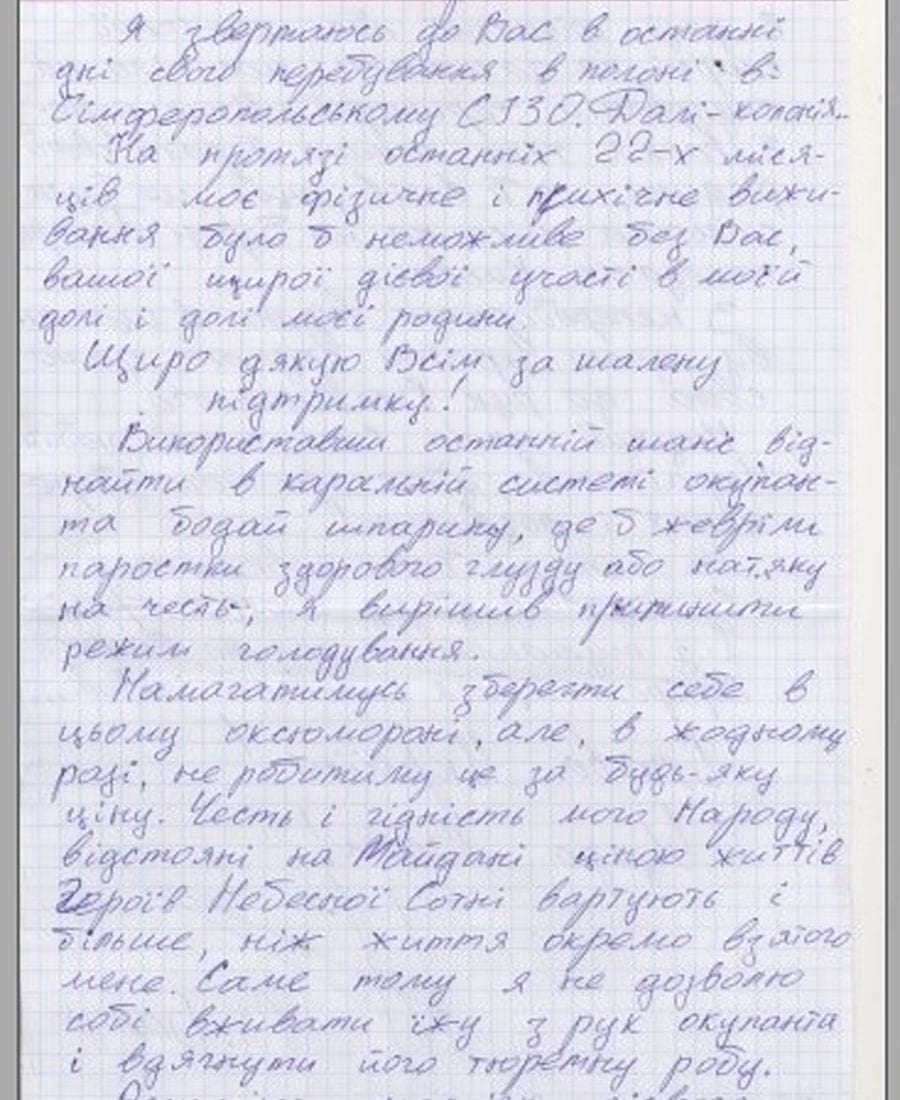 Я звертаюсь до Вас в останні
дні свого перебування в полоні в
Сімферопольському СІЗО. Далі - колонія...
На протязі останніх 22-х міся-
ців моє фізичне і психічне вижи-
вання було б неможливе без Вас,
вашої щирої дієвої участі в моїй
долі і долі моєї родини.
Щиро дякую Всім за шалену
підтримку!
Використавши останній шанс від-
найти в каральній системі окупан-
та бодай шпарину, де б жевріли
паростки здорового глузду або натяку
на честь, я вирішив припинити
режим голодування.
Намагатимусь зберегти себе в
цьому оксюмороні, але, в жодному
разі, не робитиму це за будь-яку
ціну. Честь і гідність мого Народу,
відстояні на Майдані ціною життів
Героїв Небесної Сотні вартують і
більше, ніж життя окремо взятого
мене. Саме тому я не дозволю
собі вживати їжу з рук окупанта
і вдягнути його тюремну робу.